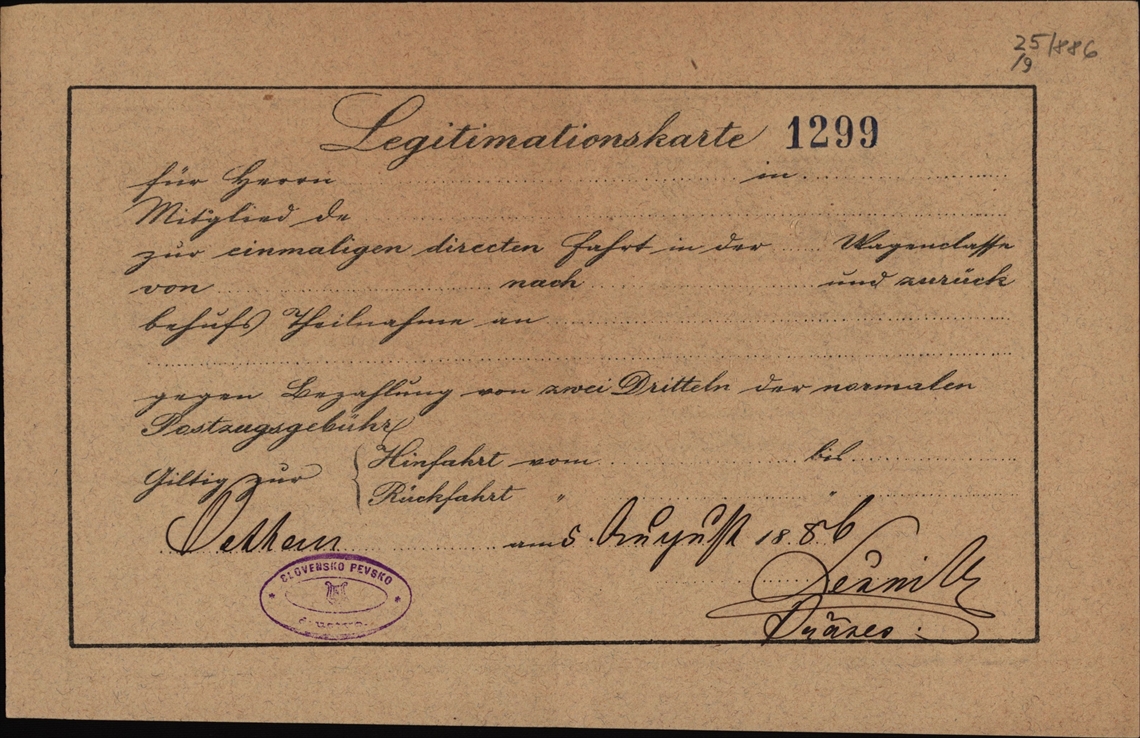 25/886
/9
Legitimationskarte 1299
für Herrn in
Mitglied de
zur einmaligen directen Fahrt in der Wagenclasse
von nach und zurück
behufs Theilnahme an
gegen Bezahlung von zwei Dritteln der normalen
Postzugsgebühr
Giltig zur
Hinfahrt vom bis
Rückfahrt " "
am 5. August 1886
SLOVENSKO PEVSKO
Präses